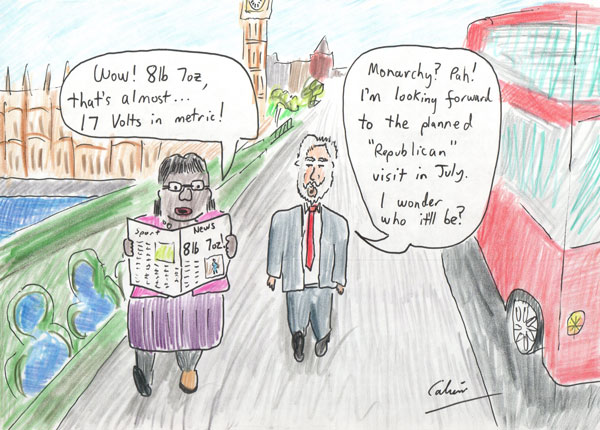 Wow! 8lb 7oz,
that's almost...
17 Volts in metric!
Monarchy? Pah!
I'm looking forward
to the planned
"Republican"
visit in July.
I wonder
who it'll be?
Sport
News
8lb 7oz